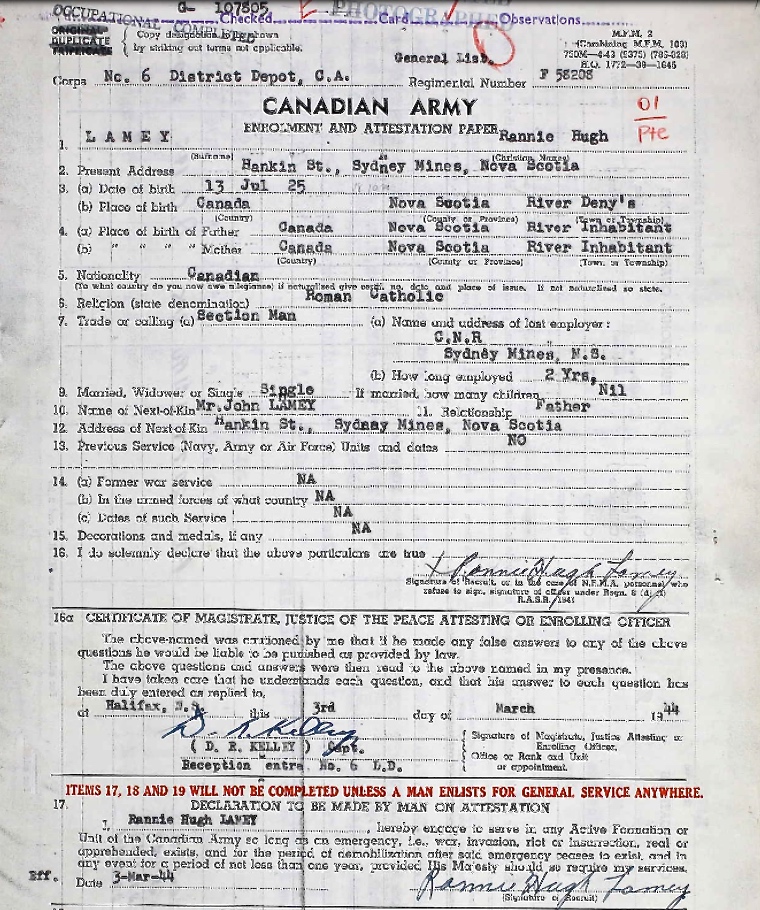 OCCUPATIONAL COMPLETED G- 107505 Checked Card Observations
PHOTOGRAPHED
ORIGINAL
DUPLICATE
TRIPLICATE
Copy designation to be shown
by striking out terms not applicable.
M.F.M. 2
(Combining M.F.M. 103)
H.Q. 1772—39—1645
General List.
Corps No. 6 District Depot, C.A. Regimental Number F 58208
CANADIAN ARMY
01
Pte
ENROLMENT AND ATTESTATION PAPER
1. LAMEY Rannie Hugh
(Surname) (Christian Names)
2. Present Address Hankin St., Sydney Mines, Nova Scotia
3. (a) Date of birth 13 Jul 25
(b) Place of birth Canada Nova Scotia River Deny's
(Country) (County or Province) (Town or Township)
4. (a) Place of birth of Father Canada Nova Scotia River Inhabitant
(b) " " " " Mother Canada Nova Scotia River Inhabitant
(Country) (County or Province) (Town or Township)
5. Nationality Canadian
(To what country do you now owe allegiance) if naturalized give certif. no. date and place of issue. If not naturalized so state.
6. Religion (state denomination) Roman Catholic
7. Trade or calling (a) Section Man (a) Name and address of last employer:
C.N.R
Sydney Mines, N.S.
(b) How long employed 2 Yrs,
9. Married, Widower or Single Single If married, how many children Nil
10. Name of Next-of-Kin Mr. John LAMEY 11. Relationship Father
12. Address of Next-of Kin Hankin St., Sydney Mines, Nova Scotia
13. Previous Service (Navy, Army or Air Force) Units and dates NO
14. (a) Former war service NA
(b) In the armed forces of what country NA
(c) Dates of such Service NA
15. Decorations and medals, if any NA
16. I do solemnly declare that the above particulars are true Rannie Hugh Lamey
Signature of Recruit, or in the case of N.R.M.A. personnel who
refuse to sign, signature of officer under Regn. 8 (d)
R.A.S.R. 1941
16a CERTIFICATE OF MAGISTRATE, JUSTICE OF THE PEACE ATTESTING OR ENROLLING OFFICER
The above-named was cautioned by me that if he made any false answers to any of the above
questions he would be liable to be punished as provided by law.
The above questions and answers were then read to the above named in my presence.
I have taken care that he understands each question, and that his answer to each question has
been duly entered as replied to,
at Halifax, N.S. this 3rd day of March 1944
D. R. Kelley
( D. R. KELLEY ) Capt.
Reception entre. No. 6 D.D.
Signature of Magistrate, Justice Attesting or
Enrolling Officer.
Office or Rank and Unit
or appointment.
ITEMS 17, 18 AND 19 WILL NOT BE COMPLETED UNLESS A MAN ENLISTS FOR GENERAL SERVICE ANYWHERE.
17. DECLARATION TO BE MADE BY MAN ON ATTESTATION
I, Rannie Hugh LAMEY, hereby engage to serve in any Active Formation or
Unit of the Canadian Army so long as an emergency, i.e., war, invasion, riot or insurrection, real or
apprehended, exists, and for the period of demobilization after said emergency ceases to exist, and in
any event for a period of not less than one year, provided His Majesty should so require my services.
Eff. Date 3-Mar-44 Rannie Hugh Lamey
(Signature of Recruit)